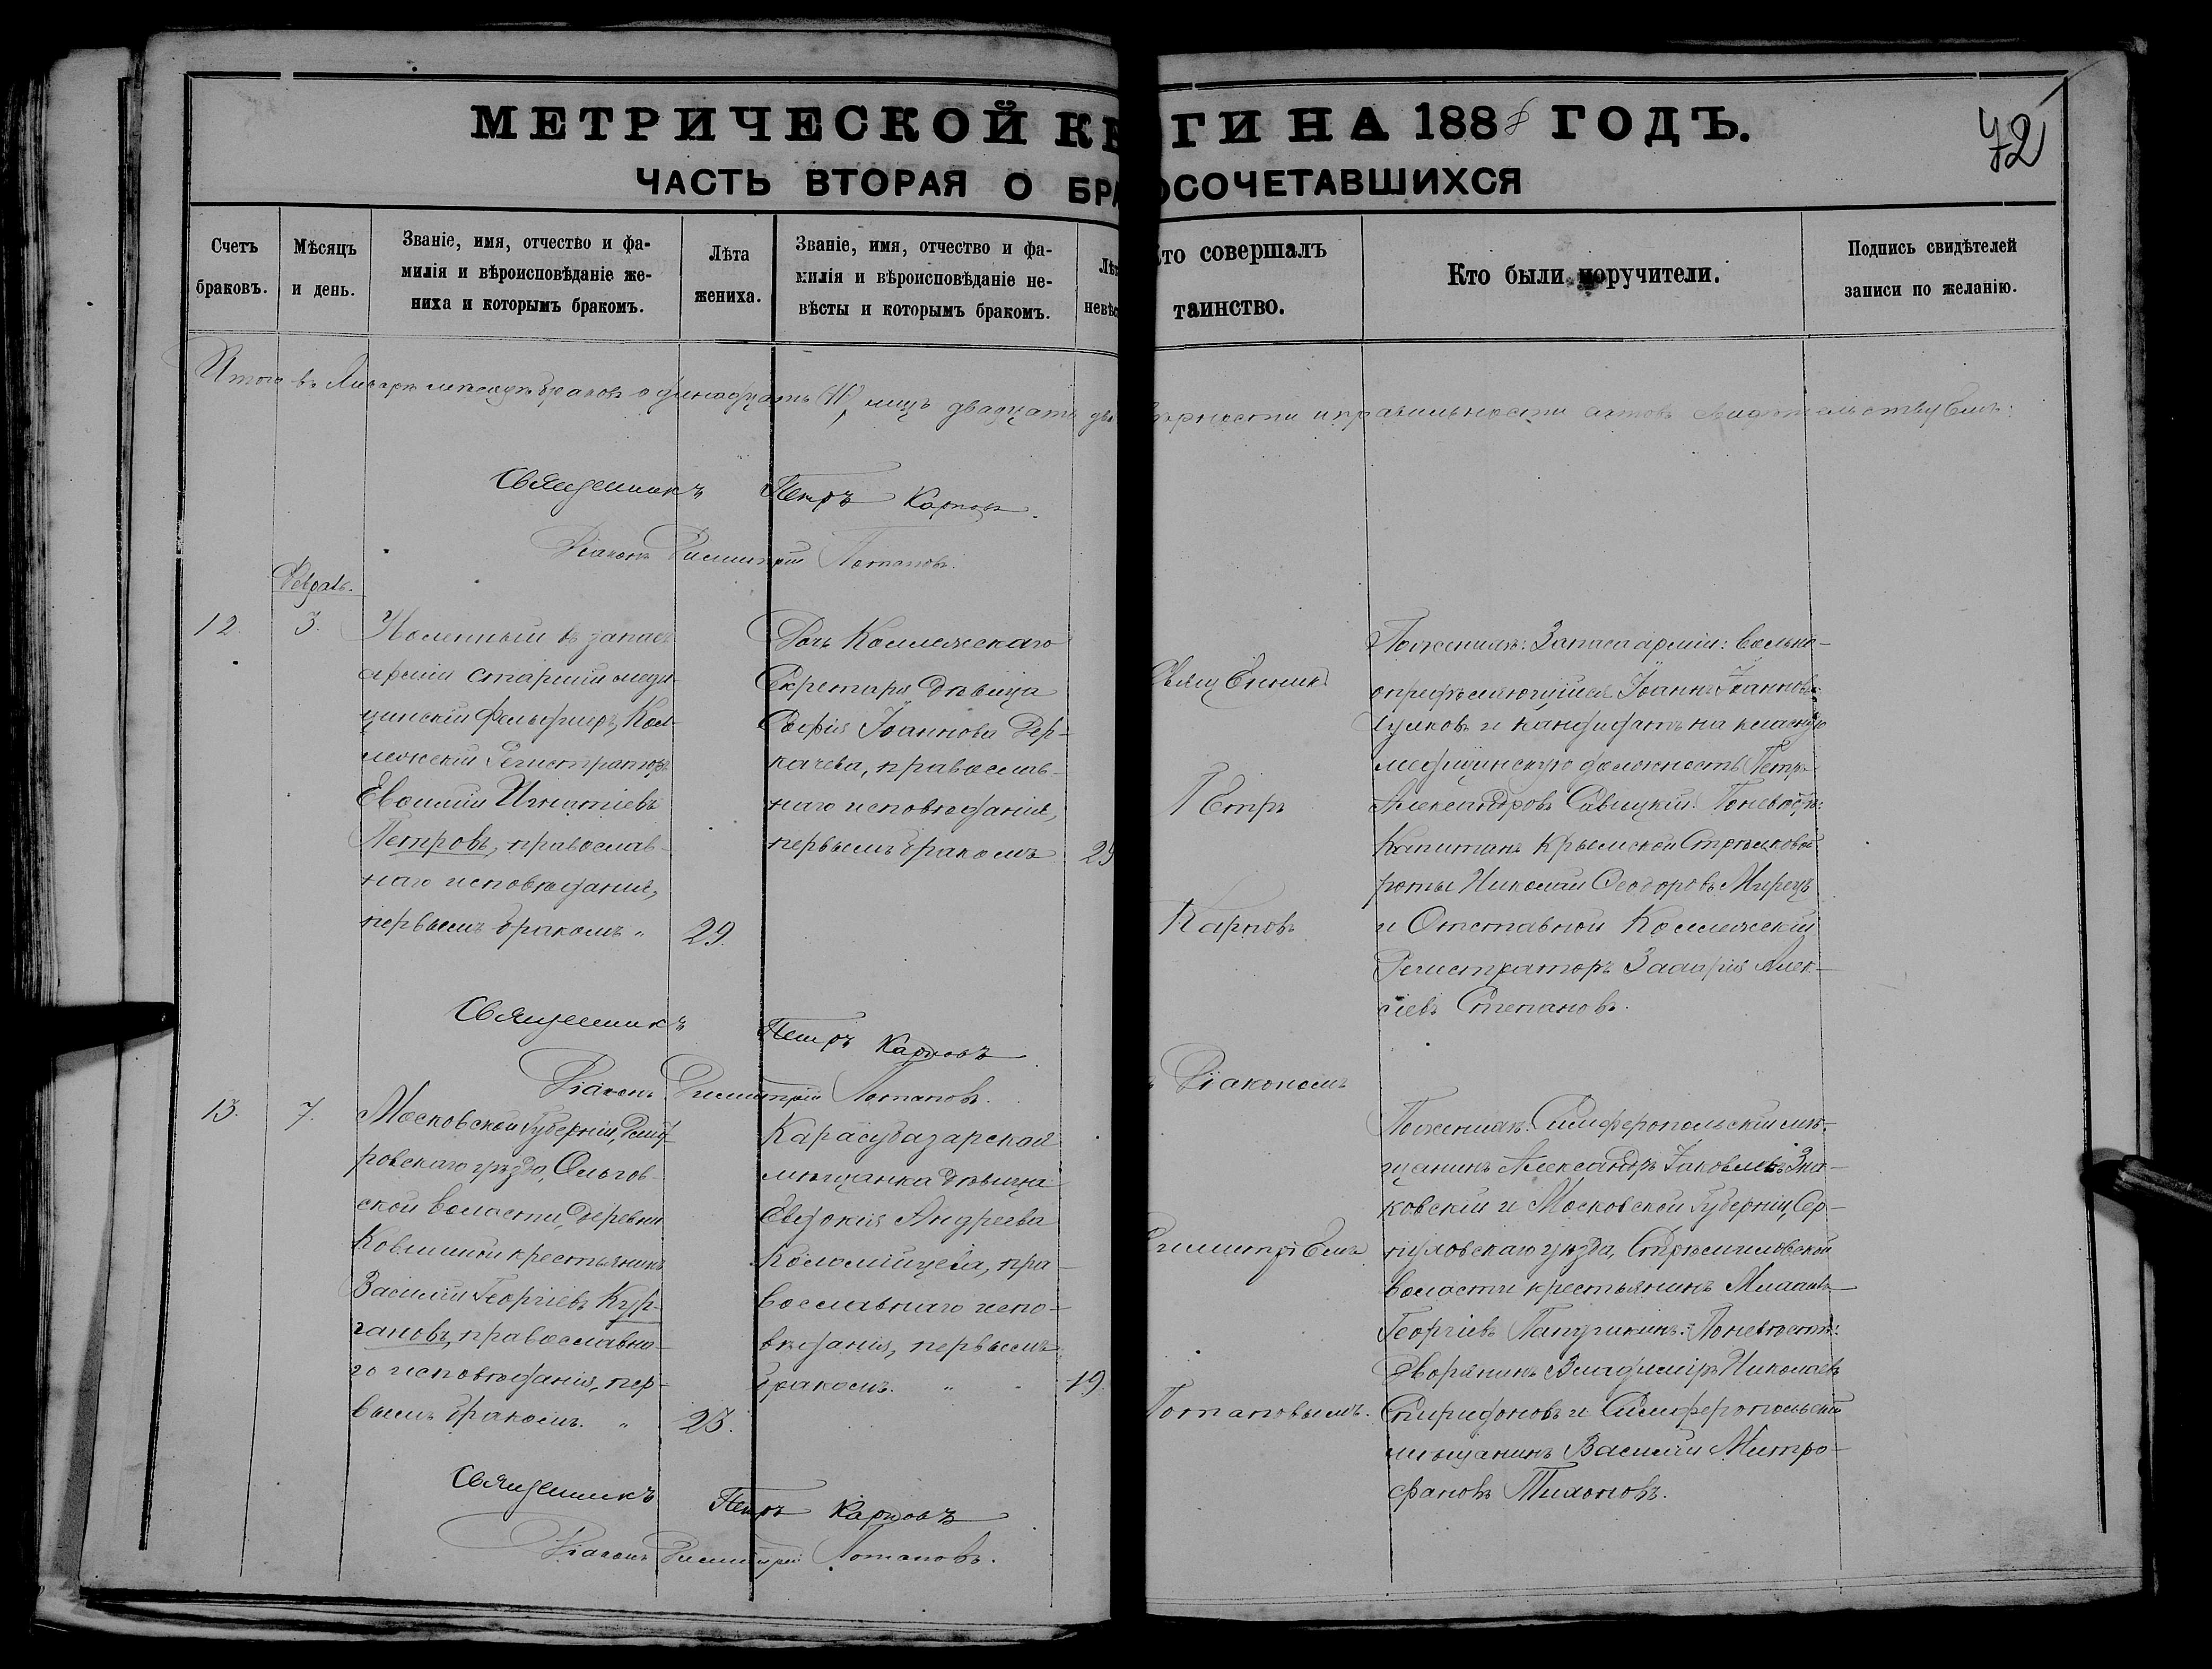 МЕТРИЧЕСКОЙ КН
ГИ НА 1888 ГОДЪ.
72
ЧАСТЬ ВТОРАЯ О БРА
ОСОЧЕТАВШИХСЯ
Счетъ браковъ.
Мѣсяцъ и день.
Званіе, имя, отчество и фа-
милія и вѣроисповѣданіе же-
ниха и которымъ бракомъ.
Лѣта жениха.
Званіе, имя, отчество и фа-
милія и вѣроисповѣданіе не-
вѣсты и которымъ бракомъ.
Лѣт
невѣс
то совершалъ
таинство.
Кто были поручители.
Подпись свидѣтелей
записи по желанію.
Итого въ Январѣ мѣсяцѣ браковъ одинадцать (11), лицъ двадцать два
вѣрности и правильности актовъ свидѣтельствуемъ:
Священникъ Петръ Карповъ.
Діаконъ Димитрій Потаповъ.
Февраль.
12.
3.
въ запасъ
арміи старшій меди-
цинскій фельдшеръ, Кол-
лежскій Регистраторъ
Игнатіевъ
Петровъ, православ-
наго исповѣданія,
первымъ бракомъ "
29.
Дочь Коллежскаго
Секретаря дѣвица
Софія Іоаннова Дер-
качева, православ-
наго исповѣданія,
первымъ бракомъ
Священник
Петръ
Карповъ
По женихѣ: Запаса арміи: вольно-
опредѣляющійся Іоаннъ Іоанновъ
и кандидатъ на классную
медицинскую должность Петръ
Александровъ Савицкій. По невѣстѣ:
Капитанъ Крымской Стрѣлковой
роты Николай Ѳеодоровъ
и Отставной Коллежскій
Регистраторъ Захарія Алек-
сіевъ Степановъ.
Священникъ Петръ Карповъ
Діаконъ Димитрій Потаповъ.
Діакономъ
13.
7.
Московской Губерніи, Дмит-
ровскаго уѣзда, Ольгов-
ской волости, деревни
крестьянинъ
Василій Георгіевъ Кур-
гановъ, православна-
го исповѣданія, пер-
вымъ бракомъ. "
23.
Карасубазарская
мѣщанка дѣвица
Евдокія Андреева
Коломійцева, пра-
вославнаго испо-
вѣданія, первымъ
бракомъ. "
19.
Димитріемъ
Потаповымъ.
По женихѣ: Симферопольскій мѣ-
щанинъ Александръ Іаковлевъ
и Московской Губерніи, Сер-
пуховскаго уѣзда,
волости крестьянинъ
Георгіевъ По невѣстѣ:
Дворянинъ Владиміръ Николаевъ
Спиридоновъ и Симферопольскій
мѣщанинъ Василій Митро-
фановъ Тихоновъ.
Священникъ Петръ Карповъ
Діаконъ Димитрій Потаповъ.